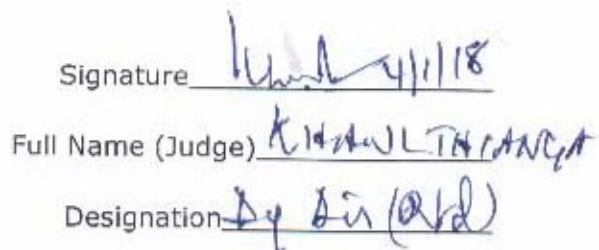 Signature 4/1/18
Full Name (Judge) KHAWLTHIANGA
Designation Dy Dir (Rtd)